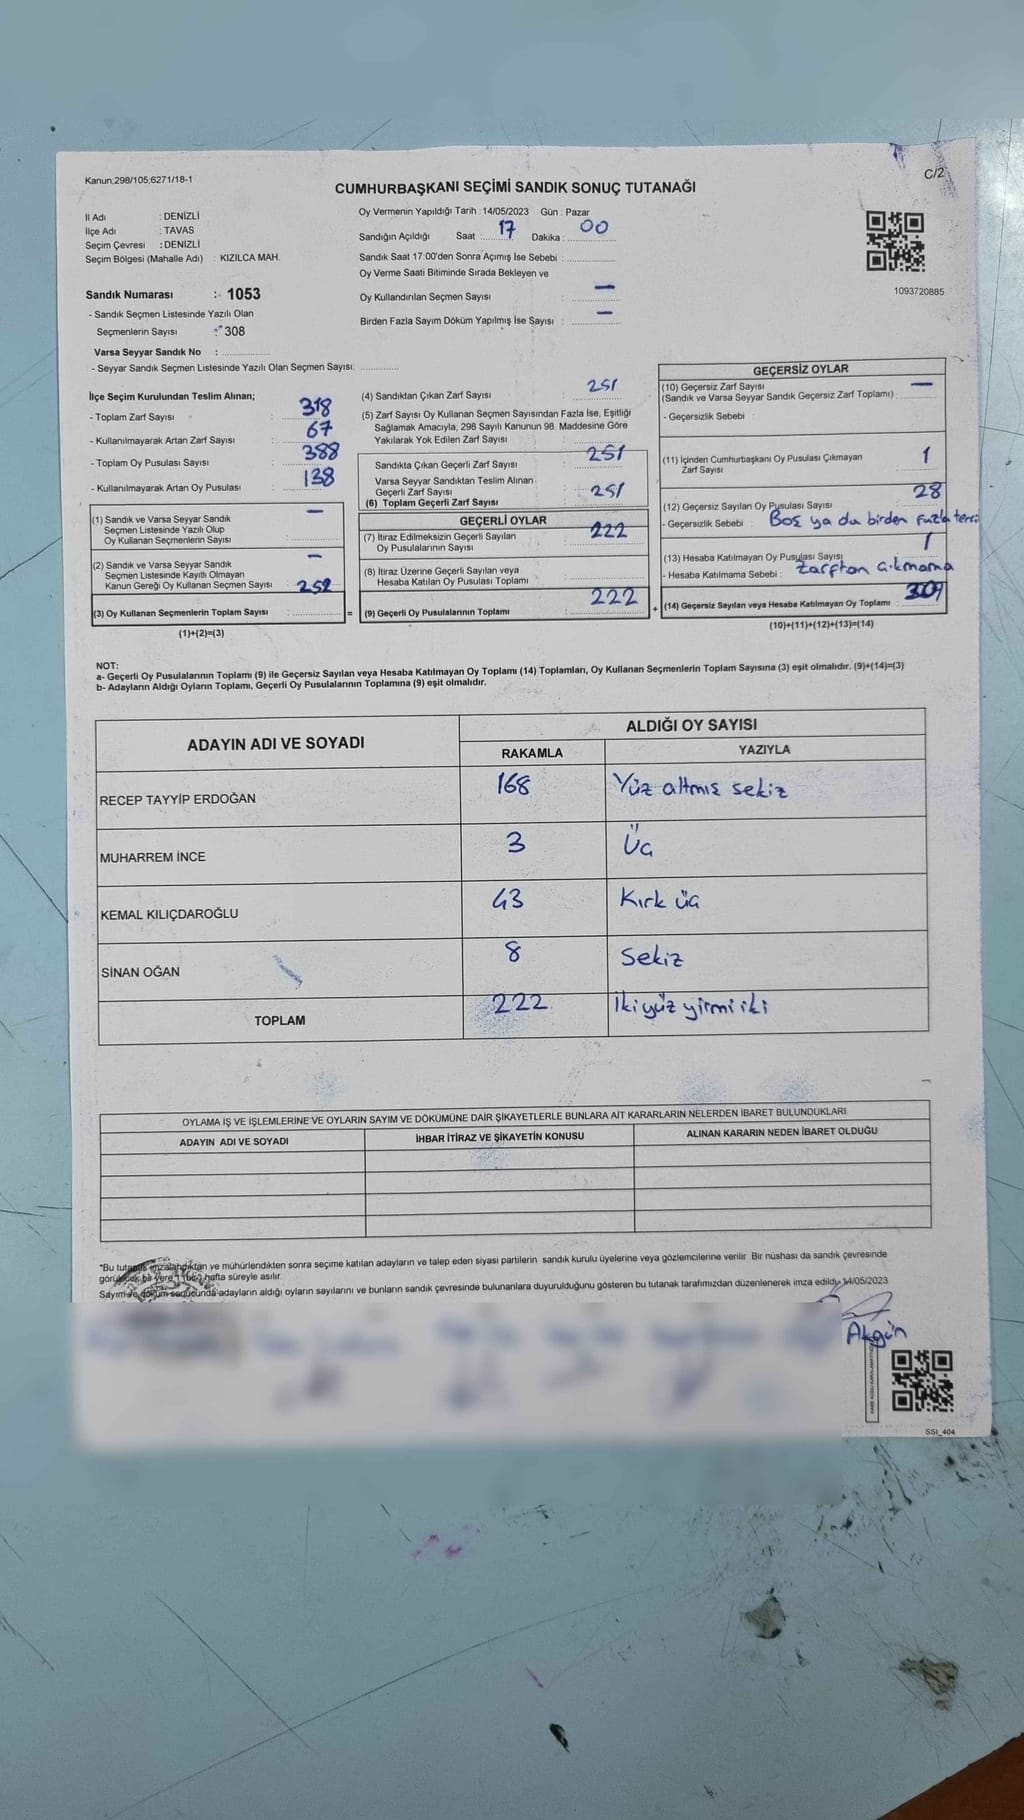 Kanun:298/105;6271/18-1
C/2
CUMHURBAŞKANI SEÇİMİ SANDIK SONUÇ TUTANAĞI
İl Adı : DENİZLİ
İlçe Adı : TAVAS
Seçim Çevresi : DENİZLİ
Seçim Bölgesi (Mahalle Adı) : KIZILCA MAH.
Oy Vermenin Yapıldığı Tarih : 14/05/2023 Gün : Pazar
Sandığın Açıldığı Saat : 17 Dakika : 00
Sandık Saat 17:00'den Sonra Açımış İse Sebebi :
Oy Verme Saati Bitiminde Sırada Bekleyen ve
Oy Kullandırılan Seçmen Sayısı : —
Birden Fazla Sayım Döküm Yapılmış İse Sayısı : —
1093720885
Sandık Numarası : 1053
- Sandık Seçmen Listesinde Yazılı Olan
Seçmenlerin Sayısı : 308
Varsa Seyyar Sandık No :
- Seyyar Sandık Seçmen Listesinde Yazılı Olan Seçmen Sayısı:
İlçe Seçim Kurulundan Teslim Alınan;
- Toplam Zarf Sayısı : 318
- Kullanılmayarak Artan Zarf Sayısı : 67
- Toplam Oy Pusulası Sayısı : 388
- Kullanılmayarak Artan Oy Pusulası : 138
(1) Sandık ve Varsa Seyyar Sandık —
Seçmen Listesinde Yazılı Olup
Oy Kullanan Seçmenlerin Sayısı
(2) Sandık ve Varsa Seyyar Sandık —
Seçmen Listesinde Kayıtlı Olmayan
Kanun Gereği Oy Kullanan Seçmen Sayısı
(3) Oy Kullanan Seçmenlerin Toplam Sayısı : 252 =
(1)+(2)=(3)
(4) Sandıktan Çıkan Zarf Sayısı : 251
(5) Zarf Sayısı Oy Kullanan Seçmen Sayısından Fazla İse, Eşitliği
Sağlamak Amacıyla; 298 Sayılı Kanunun 98. Maddesine Göre
Yakılarak Yok Edilen Zarf Sayısı :
Sandıkta Çıkan Geçerli Zarf Sayısı : 251
Varsa Seyyar Sandıktan Teslim Alınan
Geçerli Zarf Sayısı :
(6) Toplam Geçerli Zarf Sayısı : 251
GEÇERLİ OYLAR
(7) İtiraz Edilmeksizin Geçerli Sayılan 222
Oy Pusulalarının Sayısı
(8) İtiraz Üzerine Geçerli Sayılan veya
Hesaba Katılan Oy Pusulası Toplamı :
(9) Geçerli Oy Pusulalarının Toplamı : 222 +
GEÇERSİZ OYLAR
(10) Geçersiz Zarf Sayısı —
(Sandık ve Varsa Seyyar Sandık Geçersiz Zarf Toplamı) :
- Geçersizlik Sebebi :
(11) İçinden Cumhurbaşkanı Oy Pusulası Çıkmayan 1
Zarf Sayısı :
(12) Geçersiz Sayılan Oy Pusulası Sayısı : 28
- Geçersizlik Sebebi : Boş ya da birden fazla tercih
(13) Hesaba Katılmayan Oy Pusulası Sayısı : 1
- Hesaba Katılmama Sebebi : Zarftan çıkmama
(14) Geçersiz Sayılan veya Hesaba Katılmayan Oy Toplamı :
(10)+(11)+(12)+(13)=(14)
NOT:
a- Geçerli Oy Pusulalarının Toplamı (9) ile Geçersiz Sayılan veya Hesaba Katılmayan Oy Toplamı (14) Toplamları, Oy Kullanan Seçmenlerin Toplam Sayısına (3) eşit olmalıdır. (9)+(14)=(3)
b- Adayların Aldığı Oyların Toplamı, Geçerli Oy Pusulalarının Toplamına (9) eşit olmalıdır.
ADAYIN ADI VE SOYADI
ALDIĞI OY SAYISI
RAKAMLA YAZIYLA
RECEP TAYYİP ERDOĞAN 168 Yüz altmış sekiz
MUHARREM İNCE 3 Üç
KEMAL KILIÇDAROĞLU 43 Kırk üç
SİNAN OĞAN 8 Sekiz
TOPLAM 222 İkiyüz yirmi iki
OYLAMA İŞ VE İŞLEMLERİNE VE OYLARIN SAYIM VE DÖKÜMÜNE DAİR ŞİKAYETLERLE BUNLARA AİT KARARLARIN NELERDEN İBARET BULUNDUKLARI
ADAYIN ADI VE SOYADI İHBAR İTİRAZ VE ŞİKAYETİN KONUSU ALINAN KARARIN NEDEN İBARET OLDUĞU
*Bu tutanak imzalandıktan ve mühürlendikten sonra seçime katılan adayların ve talep eden siyasi partilerin sandık kurulu üyelerine veya gözlemcilerine verilir. Bir nüshası da sandık çevresinde
görülecek bir yere 1 (bir) hafta süreyle asılır.
Sayım ve döküm sonucunda adayların aldığı oyların sayılarını ve bunların sandık çevresinde bulunanlara duyurulduğunu gösteren bu tutanak tarafımızdan düzenlenerek imza edildi. 14/05/2023
Akgün
SSI_404